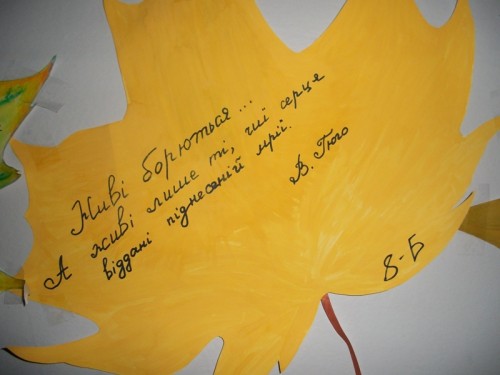 Живі борються...
А живі лише ті, чиї серця
віддані піднесеній мрії.
В. Гюго
8-Б